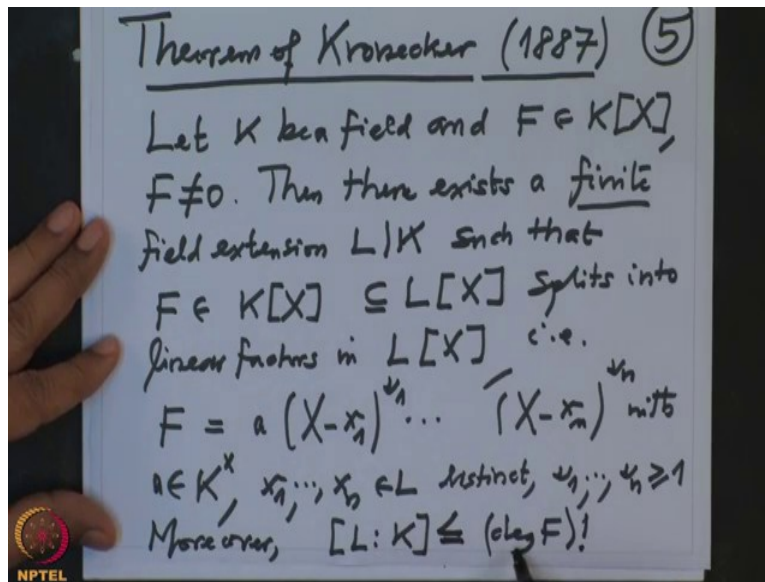 Theorem of Kronecker (1887) ⑤
Let K be a field and F ∈ K[X],
F≠0. Then there exists a finite
field extension L|K such that
F ∈ K[X] ⊆ L[X] splits into
linear factors in L[X] i.e.
F = a (X-x₁)^ν₁ ... (X-xₙ)^νₙ with
a ∈ K^×, x₁, ..., xₙ ∈ L distinct, ν₁, ..., νₙ ≥ 1
Moreover, [L:K] ≤ (deg F)!
NPTEL